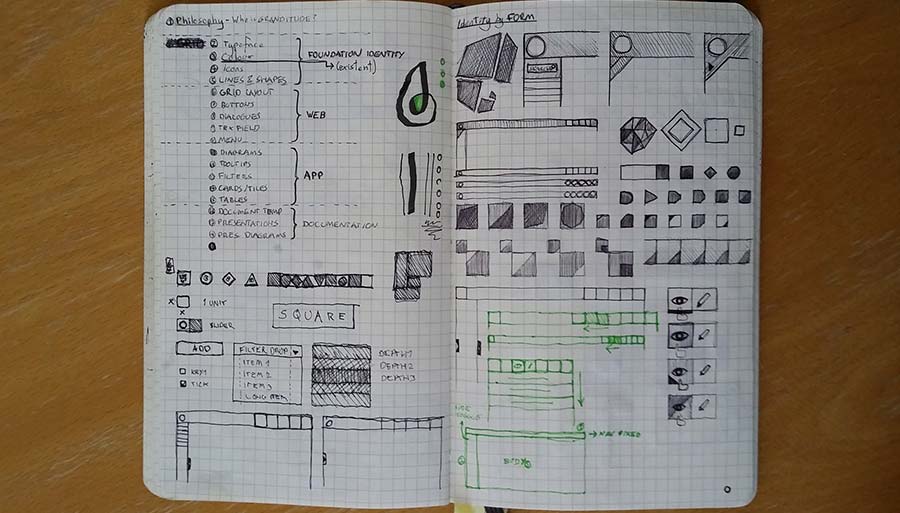 ① Philosophy - Who is GRANDITUDE?
② Typeface
③ Colour
④ Icons
⑤ LINES & SHAPES
FOUNDATION IDENTITY
(existent)
GRID LAYOUT
BUTTONS
DIALOGUES
TEXTFIELD
MENU
WEB
DIAGRAMS
TOOLTIPS
FILTERS
CARDS/TILES
TABLES
APP
DOCUMENT TEMP
PRESENTATIONS
PRES DIAGRAMS
DOCUMENTATION
X
1 UNIT
X
SLIDER
SQUARE
ADD
FILTER DROP
ITEM 1
ITEM 2
ITEM 3
LONG ITEM
KEY 1
TICK
DEPTH 1
DEPTH 2
DEPTH 3
Identity by FORM
NAV FIXED
BODY